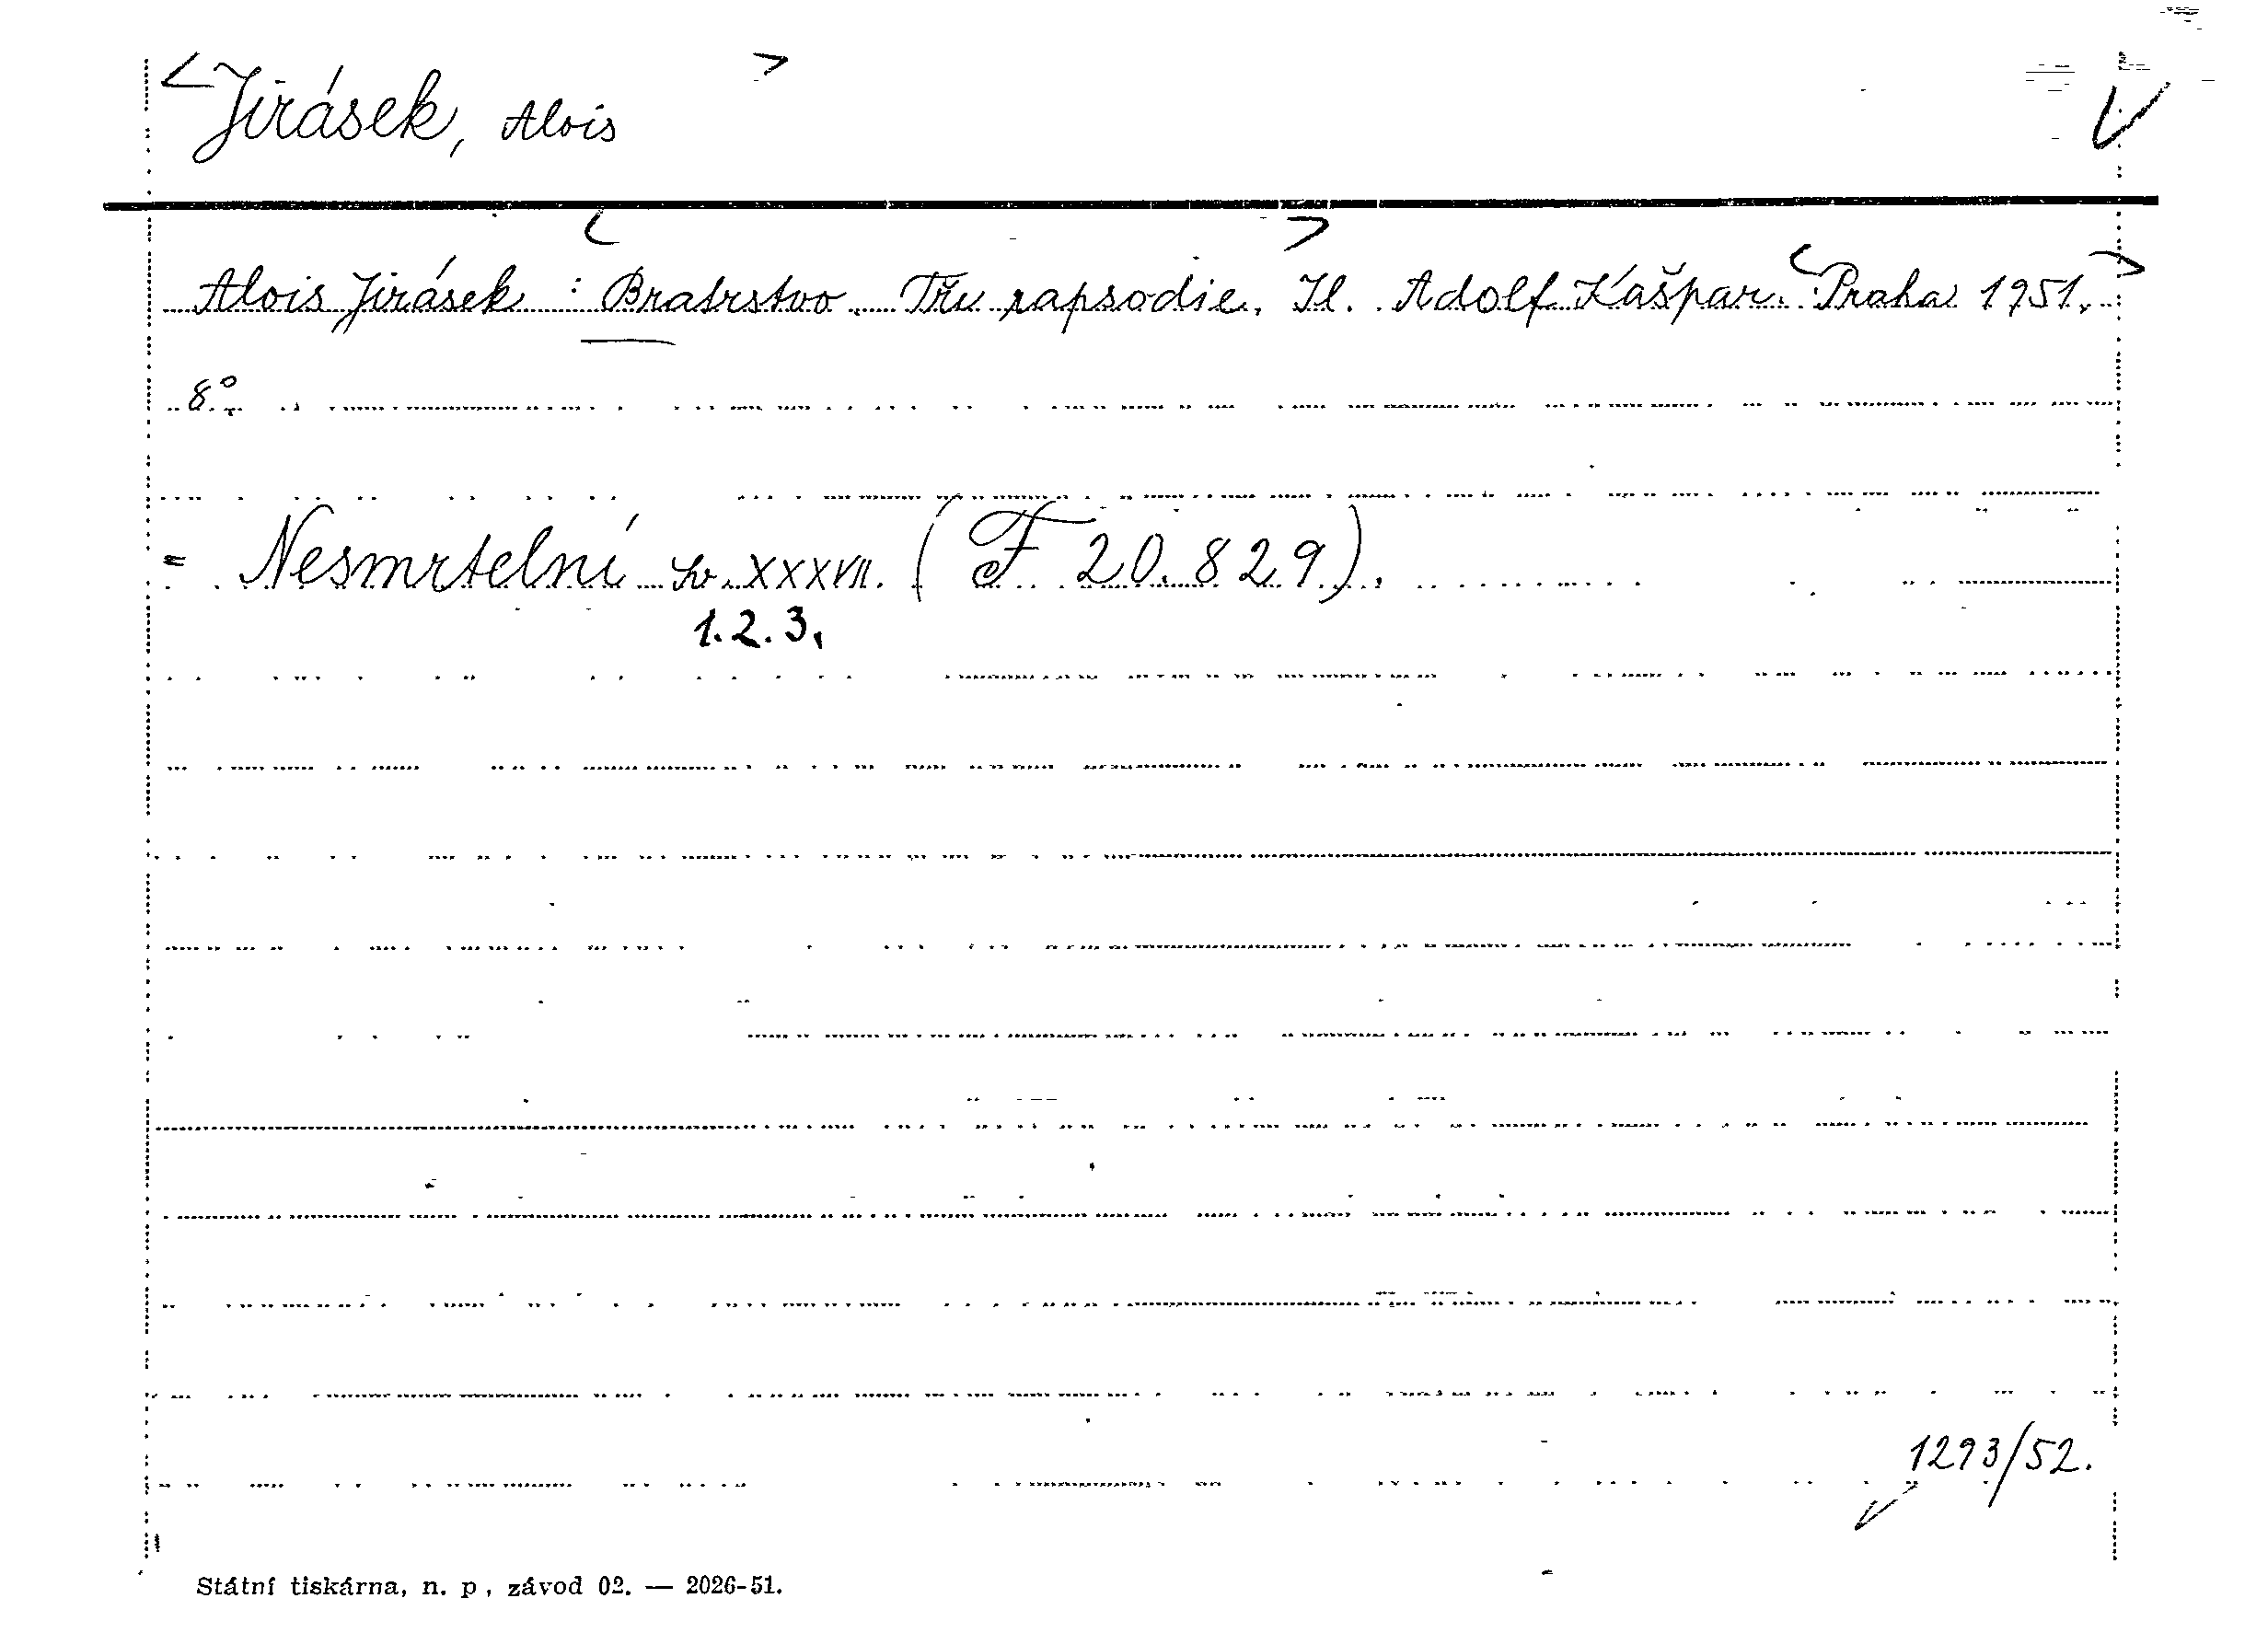 <Jirásek, Alois>
Alois Jirásek: <Bratrstvo. Tři rapsodie.> Il. Adolf Kašpar. <Praha 1951.>
8°.
= Nesmrtelní sv. XXXVII. (F 20.829).
1.2.3.
1293/52.
Státní tiskárna, n. p., závod 02. — 2026-51.